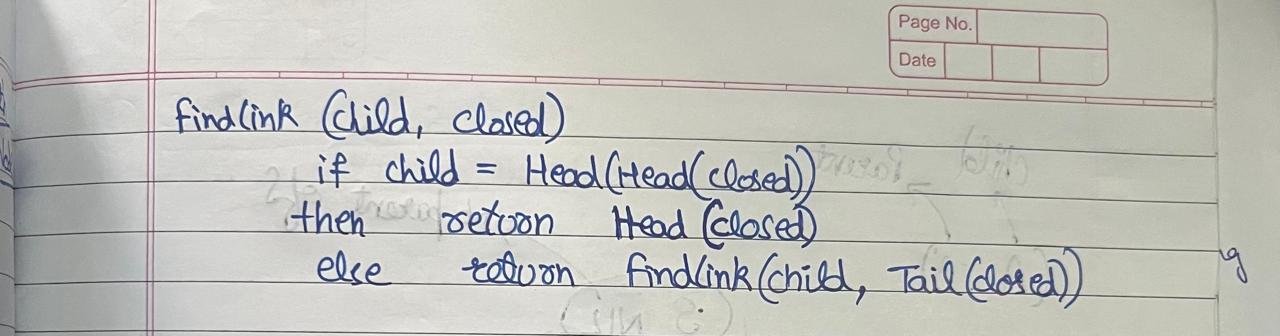 Page No.
Date
findlink (Child, closed)
if child = Head(Head(closed))
then return Head (closed)
else return findlink(child, Tail(closed))
g